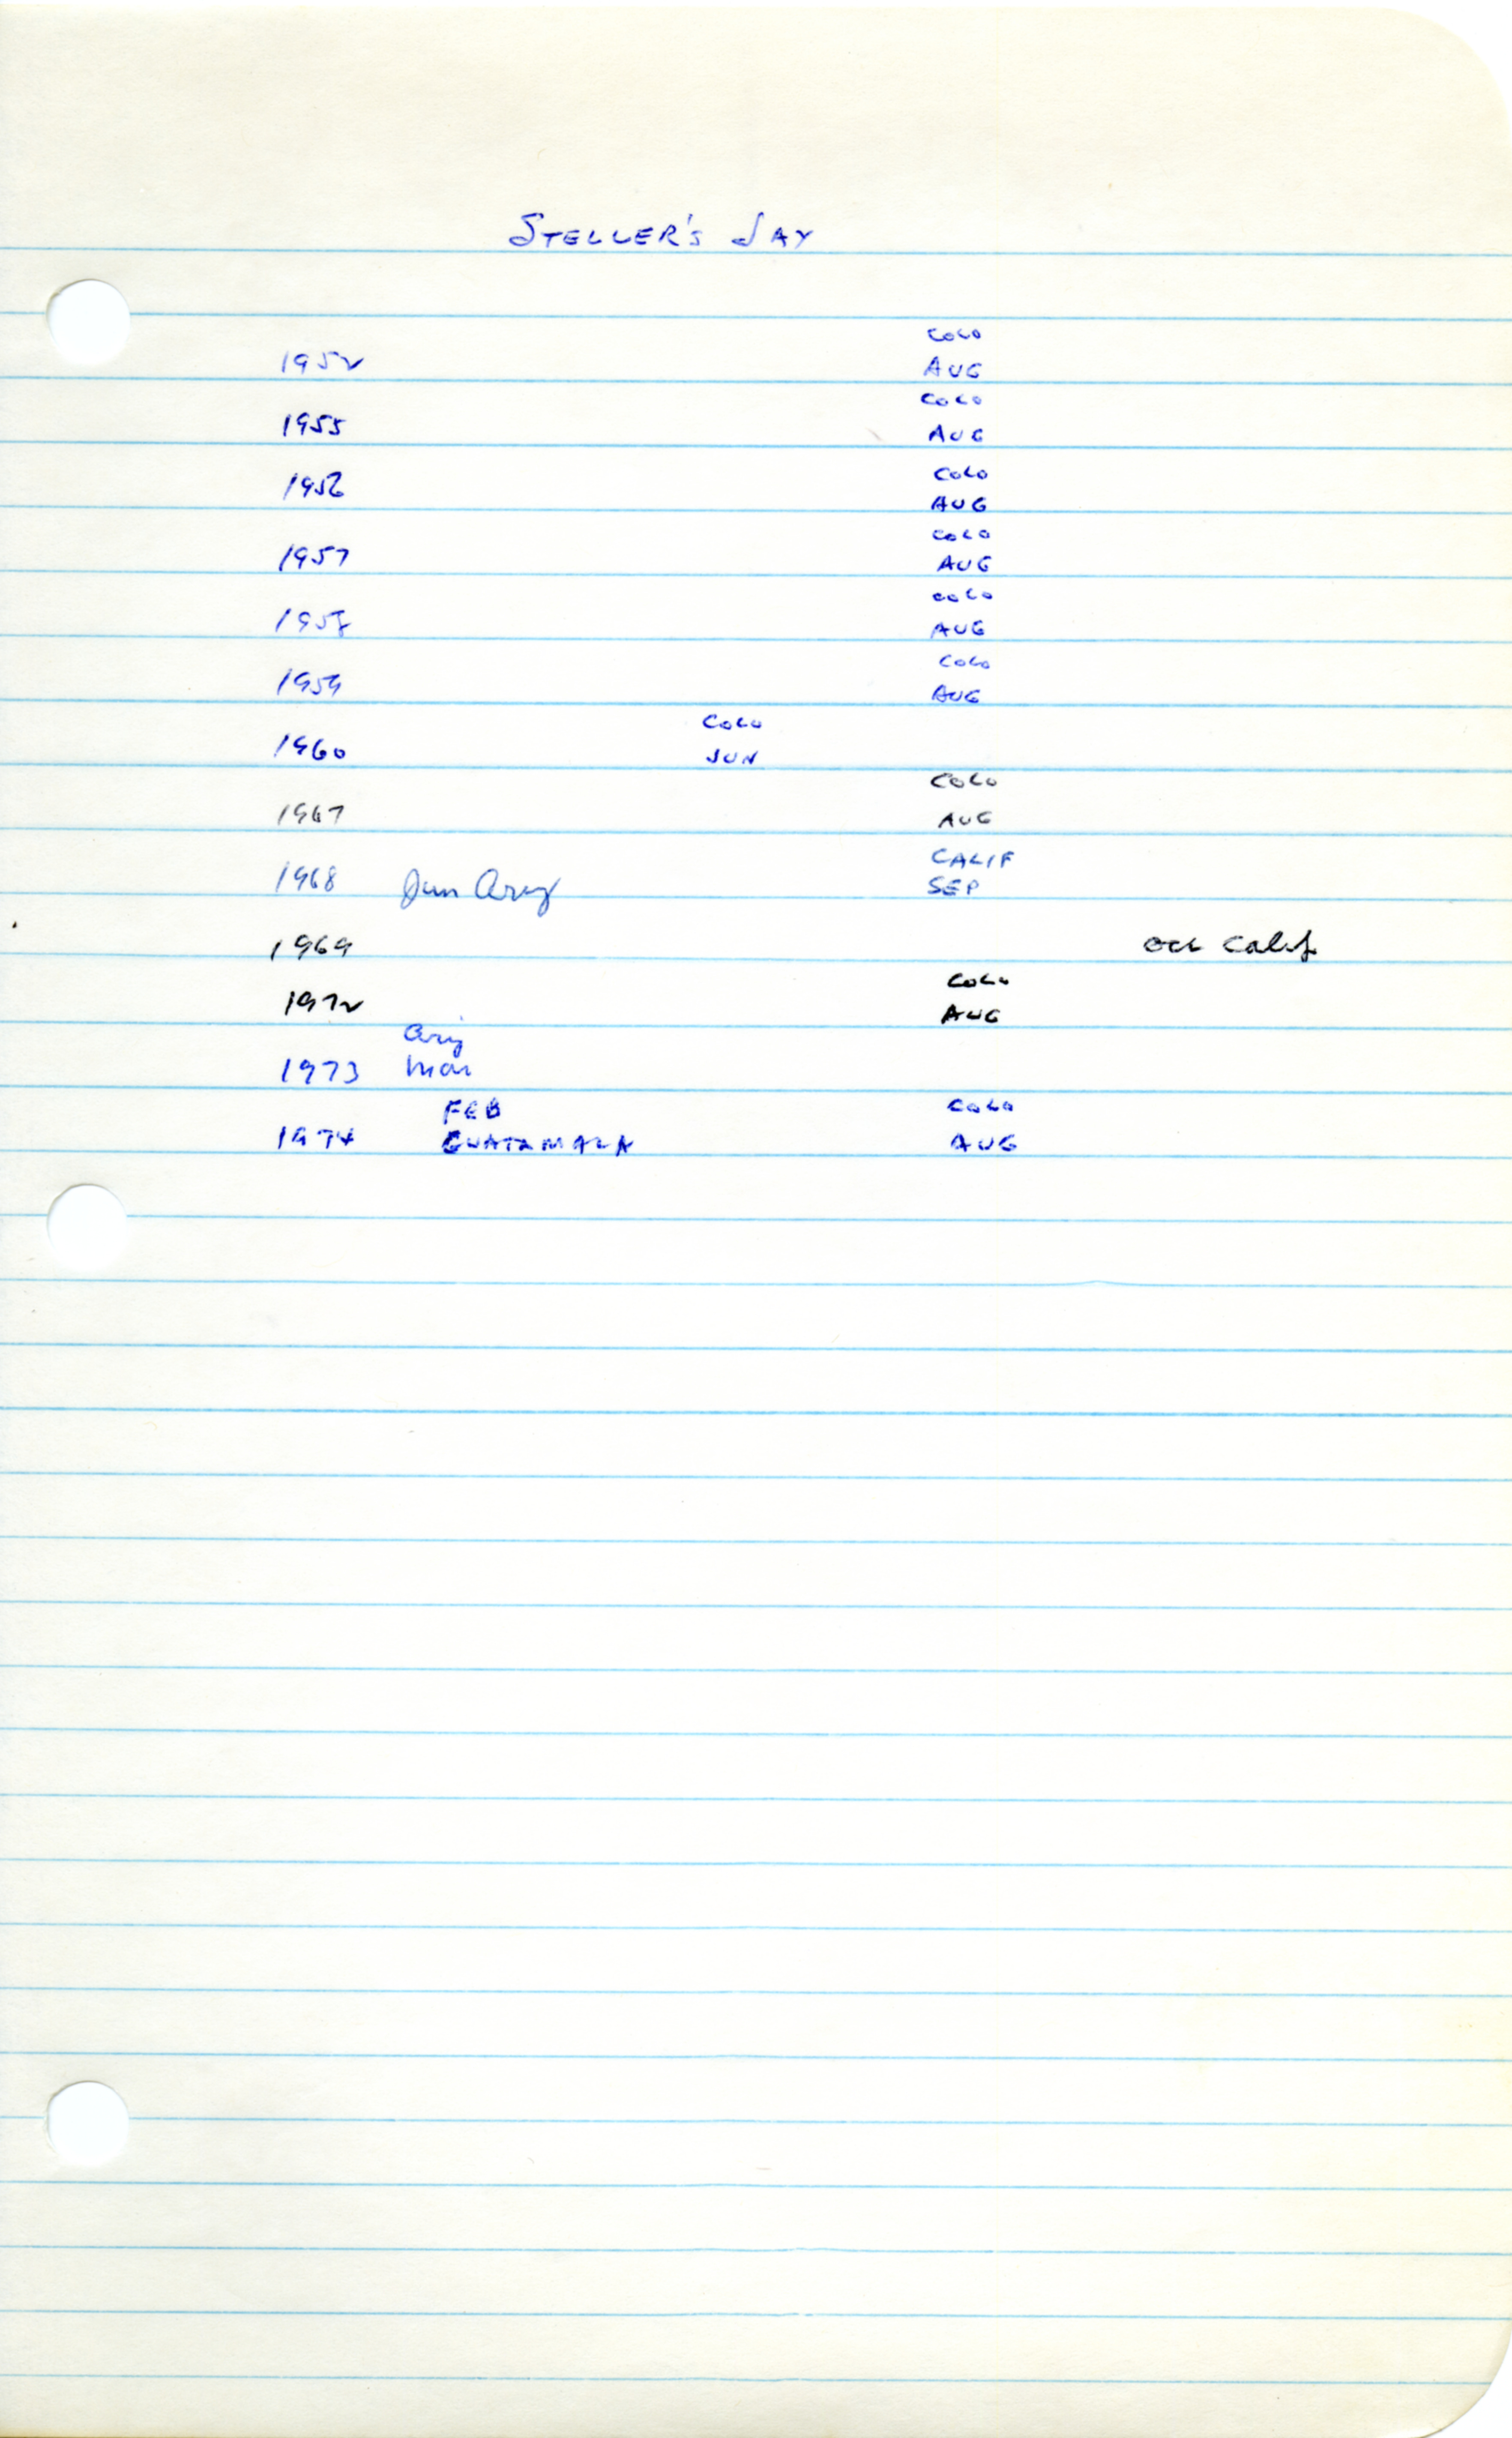 STELLER'S JAY
COLO
1952 AUG
COLO
1955 AUG
COLO
1956 AUG
COLO
1957 AUG
COLO
1958 AUG
COLO
1959 AUG
COLO
1960 JUN
COLO
1967 AUG
CALIF
1968 Jan Ariz SEP
1969 Oct Calif
COLO
1972 AUG
Ariz
1973 Mar
FEB COLO
1974 GUATAMALA AUG